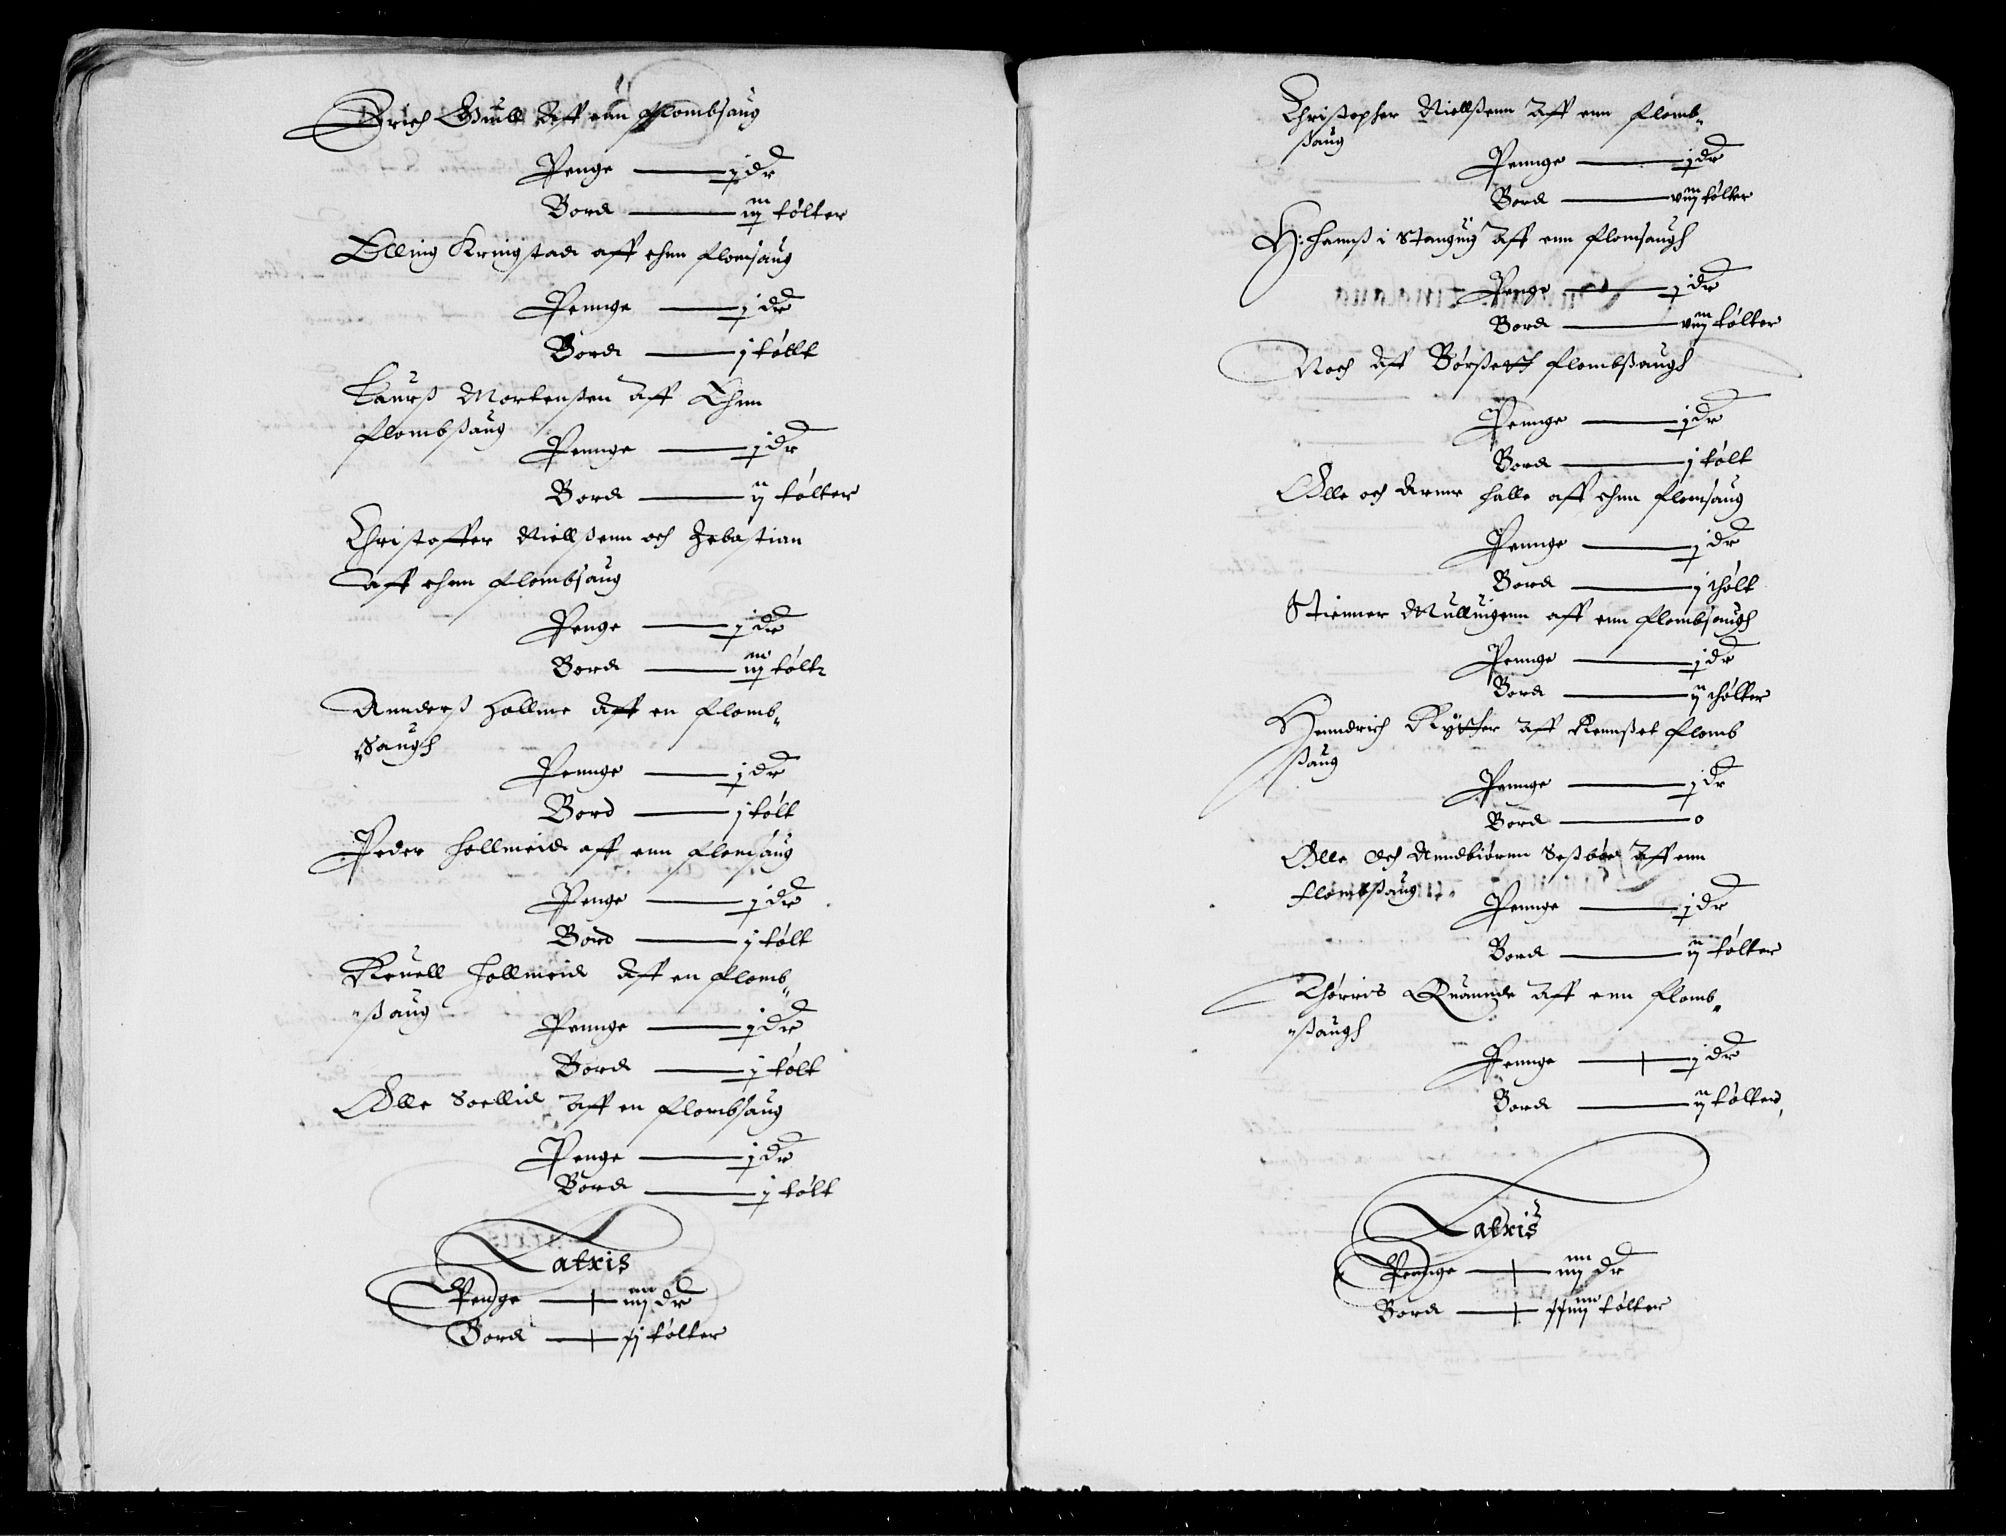 Erich Gull aff enn flombsaug
Penge — j dr
Bord — iiij tølter
Elling Kringstad aff ehnn flomsaug
Pennge — j dr
Bord — j tøllt
Laurß Mortenßen aff Ehnn
flombßaug
Pennge — j dr
Bord — ij tølter
Christoffer Niellßenn och Zebastian
aff ehnn flombsaug
Penge — j dr
Bord — iiij tølt
Annderß Hollme aff en flomb„
„Saugh
Pennge — j dr
Bord — j tølt
Peder Hollmeid aff enn flomsaug
Penge — j dr
Bord — j tølt
Reuell Hollmeid aff en flomb„
„ßaug
Pennge — j dr
Bord — j tølt
Olle Soellid aff en flombsaug
Penge — j dr
Bord — j tølt
Latris
Pennge — dr
Bord — tølter
Christopher Niellßenn aff enn flomb„
ßaug
Pennge — j dr
Bord — viij tølter
H: Hannß i Stanguig aff enn flomsaugh
Penge — j dr
Bord — viij tølter
Noch aff Børßett flombßaugh
Pennge — j dr
Bord — j tølt
Olle och Arnne Halle aff ehnn flomsaug
Pennge — j dr
Bord — j thølt
Stienner Mullingenn aff enn flombsaugh
Pennge — j dr
Bord — ij thølter
Henndrich Rytther aff Rennßet flomb
ßaug
Pennge — j dr
Bord — 0
Olle Och Anndbiørnn Seßbøe aff enn
flombßaug
Pennge — j dr
Bord — ij tølter
Thørris Quannde aff enn flomb„
„ßaugh
Pennge — j dr
Bord — ij tølter
Latris
Pennge — dr
Bord — tølter